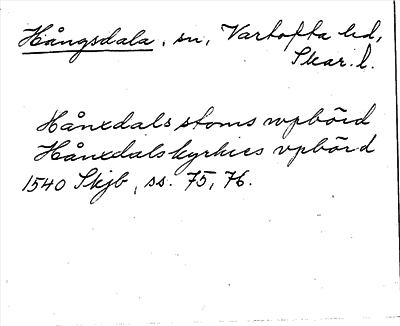 Hångsdala, sn, Vartofta hd,
Skar. l.
Hånxdals stoms vpbörd
Hånxdals kyrkies vpbörd
1540 Skjb, ss. 75, 76.